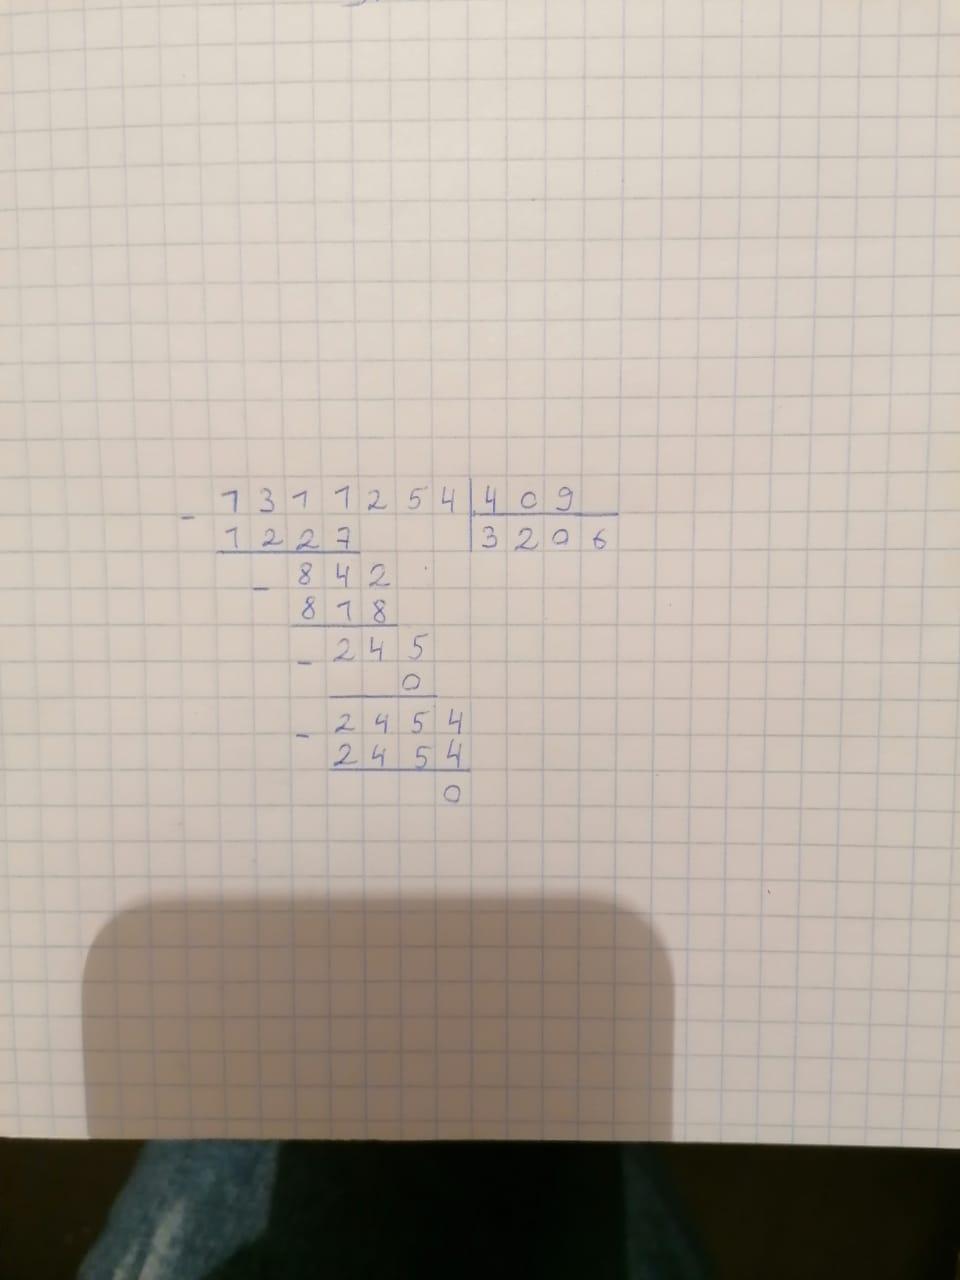 - 1311254 | 409
1227 | 3206
- 842
818
- 245
0
- 2454
2454
0